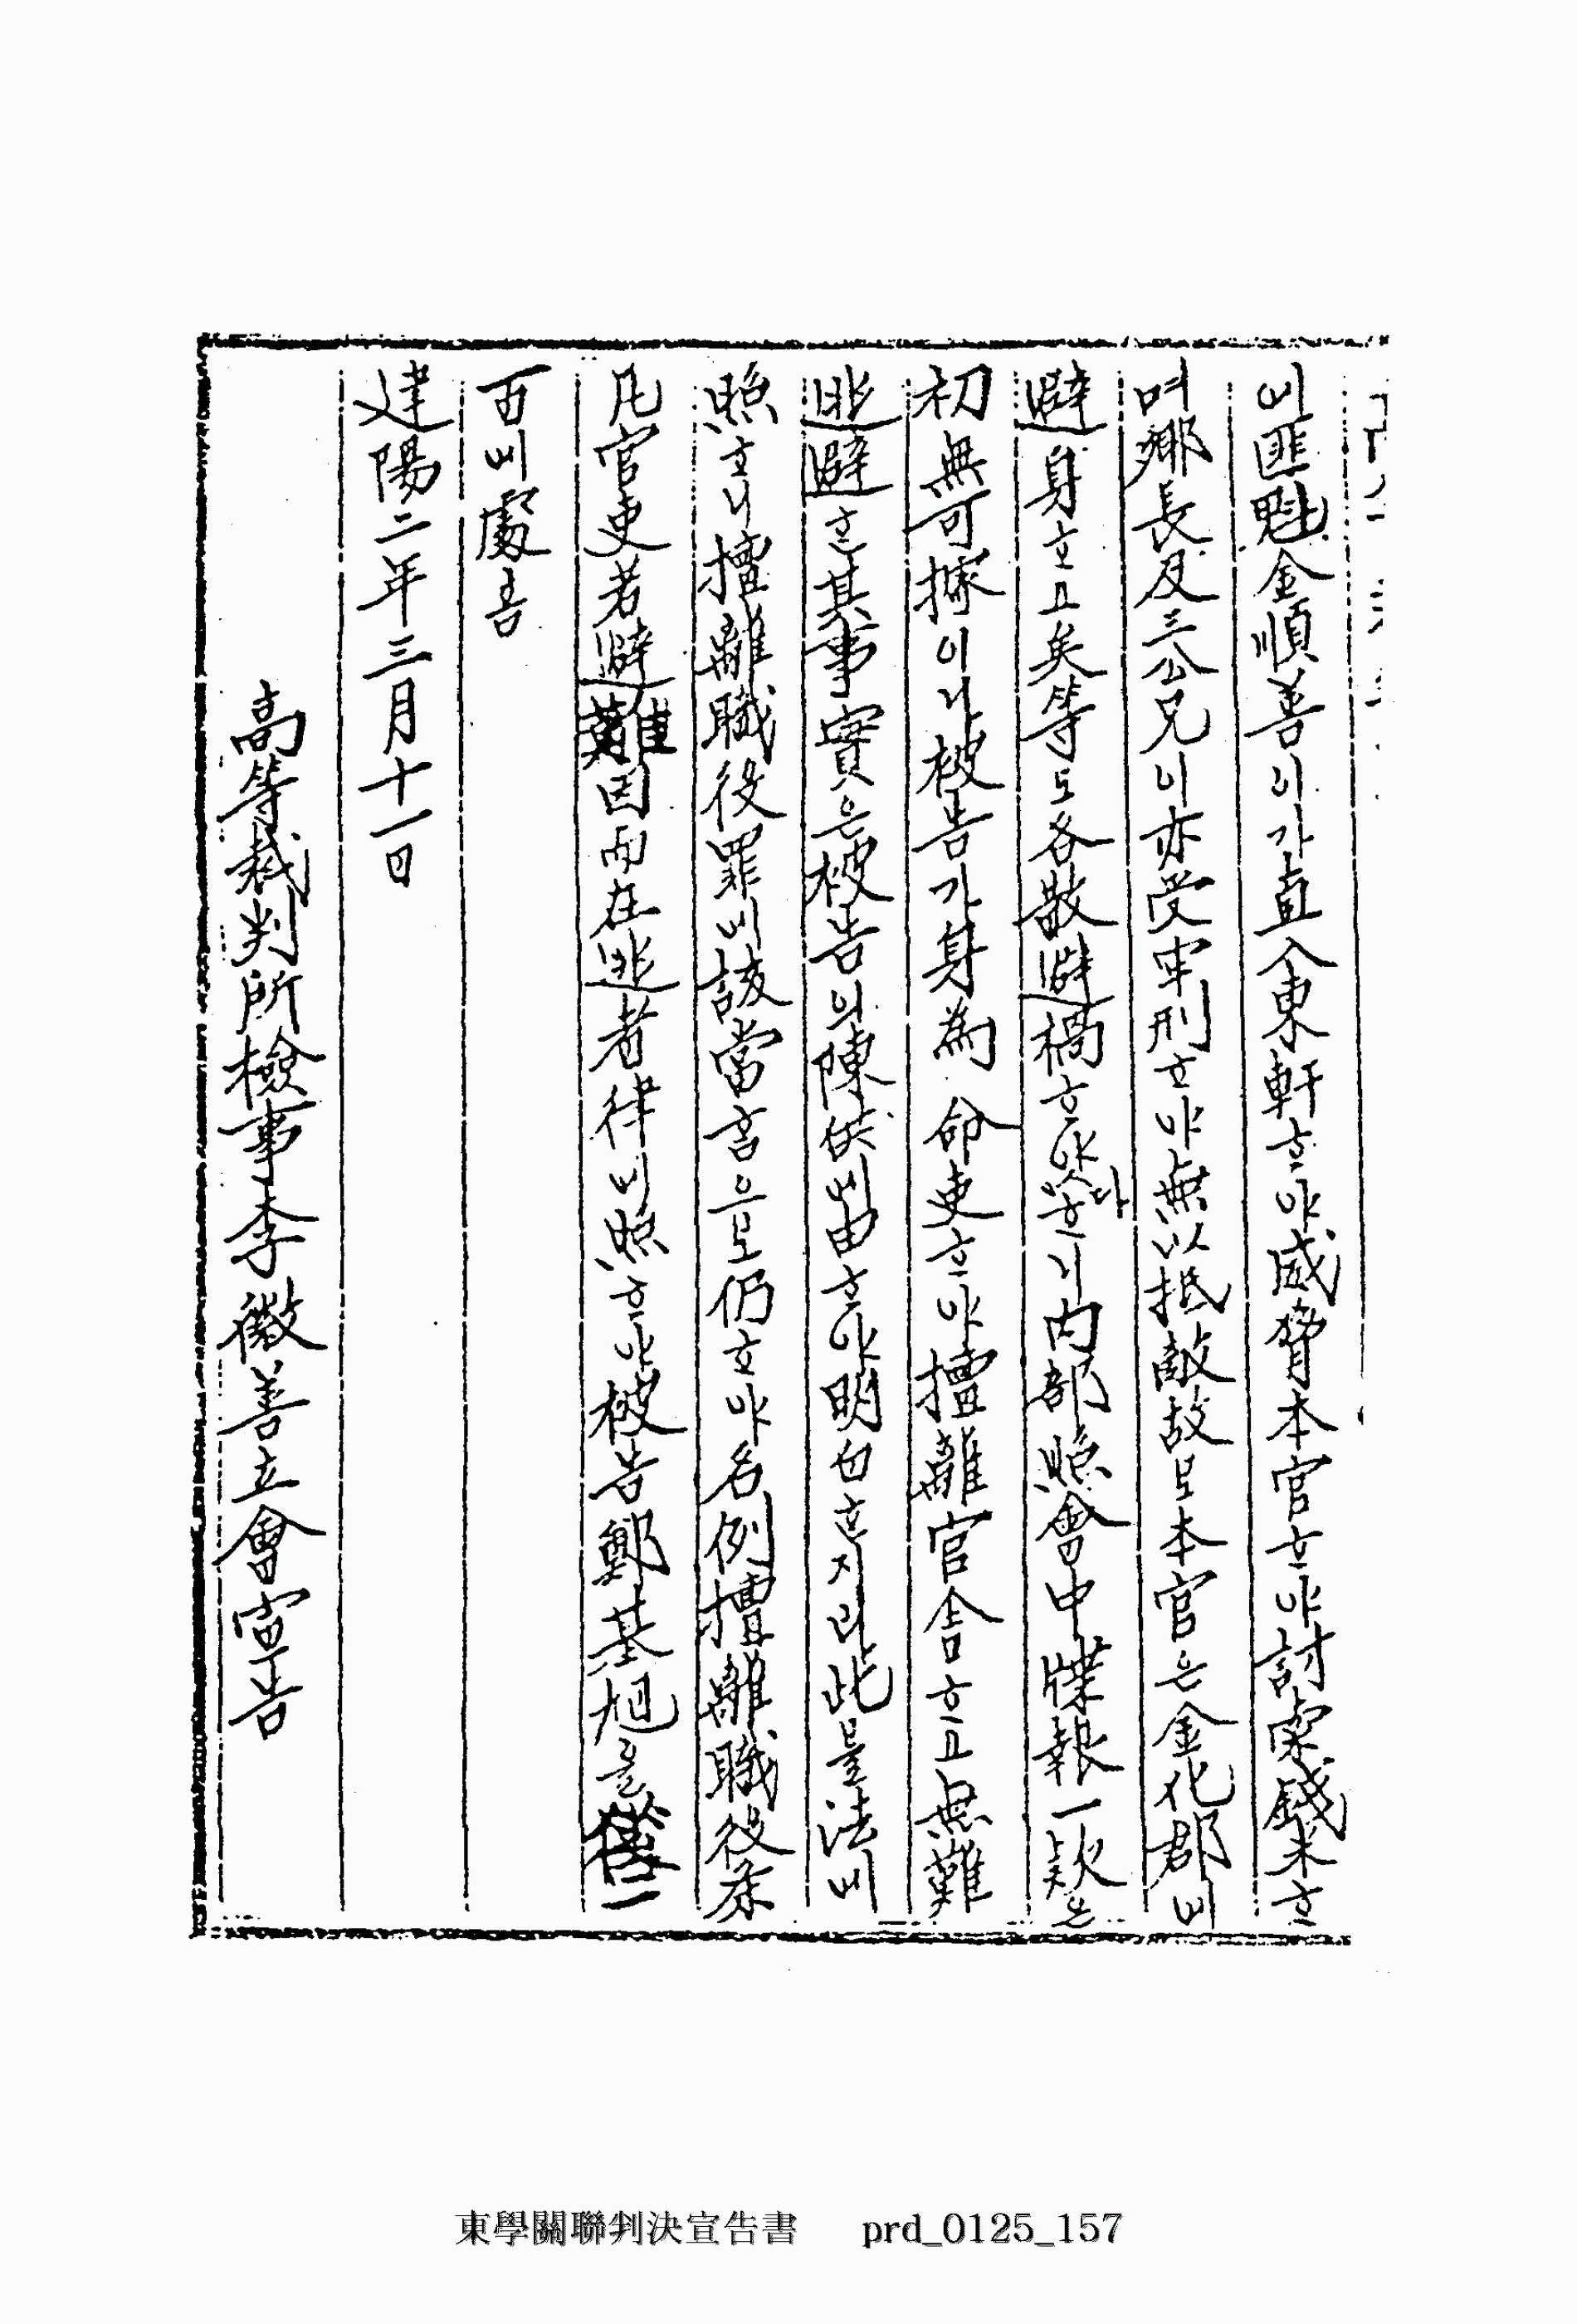 에匪魁金順善이가直入東軒ᄒᆞ야威脅本官ᄒᆞ야討索錢木ᄒᆞ
며鄕長及三公兄이亦受牢刑ᄒᆞ야無以抵敵故로本官은金化郡에
避身ᄒᆞ고矣等도各散避禍ᄒᆞ얏다ᄒᆞ니內部照會中牒報一款은
初無可據이니被告가身為 命吏ᄒᆞ야擅離官舍ᄒᆞ고無難
逃避ᄒᆞᆫ其事實은被告의陳供에由ᄒᆞ야明白ᄒᆞᆫ지라此ᄅᆞᆯ法에
照ᄒᆞ니擅離職役罪에該當ᄒᆞᆷ으로仍ᄒᆞ야名例擅離職役条
凡官吏若避難因而在逃者律에照ᄒᆞ야被告鄭基旭을笞一
百에處ᄒᆞᆷ
建陽二年三月十一日
高等裁判所檢事李徽善立會宣告
東學關聯判決宣告書 prd_0125_157